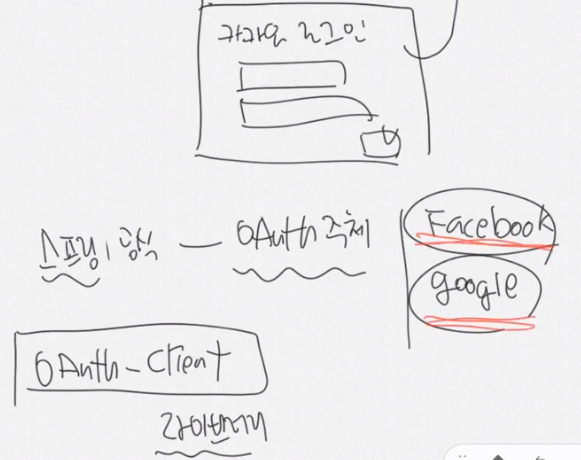 카카오 로그인
스프링, 공식 — OAuth 주체
Facebook
google
OAuth-Client
라이브러리